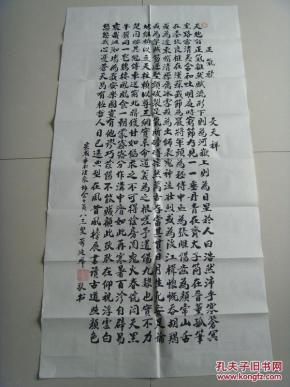 正氣歌
文天祥
天地有正氣雜然賦流形下則為河嶽上則為日星於人曰浩然沛乎塞蒼冥
皇路當清夷含和吐明庭時窮節乃見一一垂丹青在齊太史簡在晉董狐筆
在秦張良椎在漢蘇武節為嚴將軍頭為嵇侍中血為張睢陽齒為顏常山舌
或為遼東帽清操厲冰雪或為出師表鬼神泣壯烈或為渡江楫慷慨吞胡羯
或為擊賊笏逆豎頭破裂是氣所磅礴凜烈萬古存當其貫日月生死安足論
地維賴以立天柱賴以尊三綱實系命道義為之根嗟予遘陽九隸也實不力
楚囚纓其冠傳車送窮北鼎鑊甘如飴求之不可得陰房闐鬼火春院閟天黑
牛驥同一皂雞棲鳳凰食一朝蒙霧露分作溝中瘠如此再寒暑百沴自辟易
哀哉沮洳場為我安樂國豈有他繆巧陰陽不能賊顧此耿耿在仰視浮雲白
悠悠我心悲蒼天曷有極哲人日已遠典刑在夙昔風簷展書讀古道照顏色
八三叟 敬書